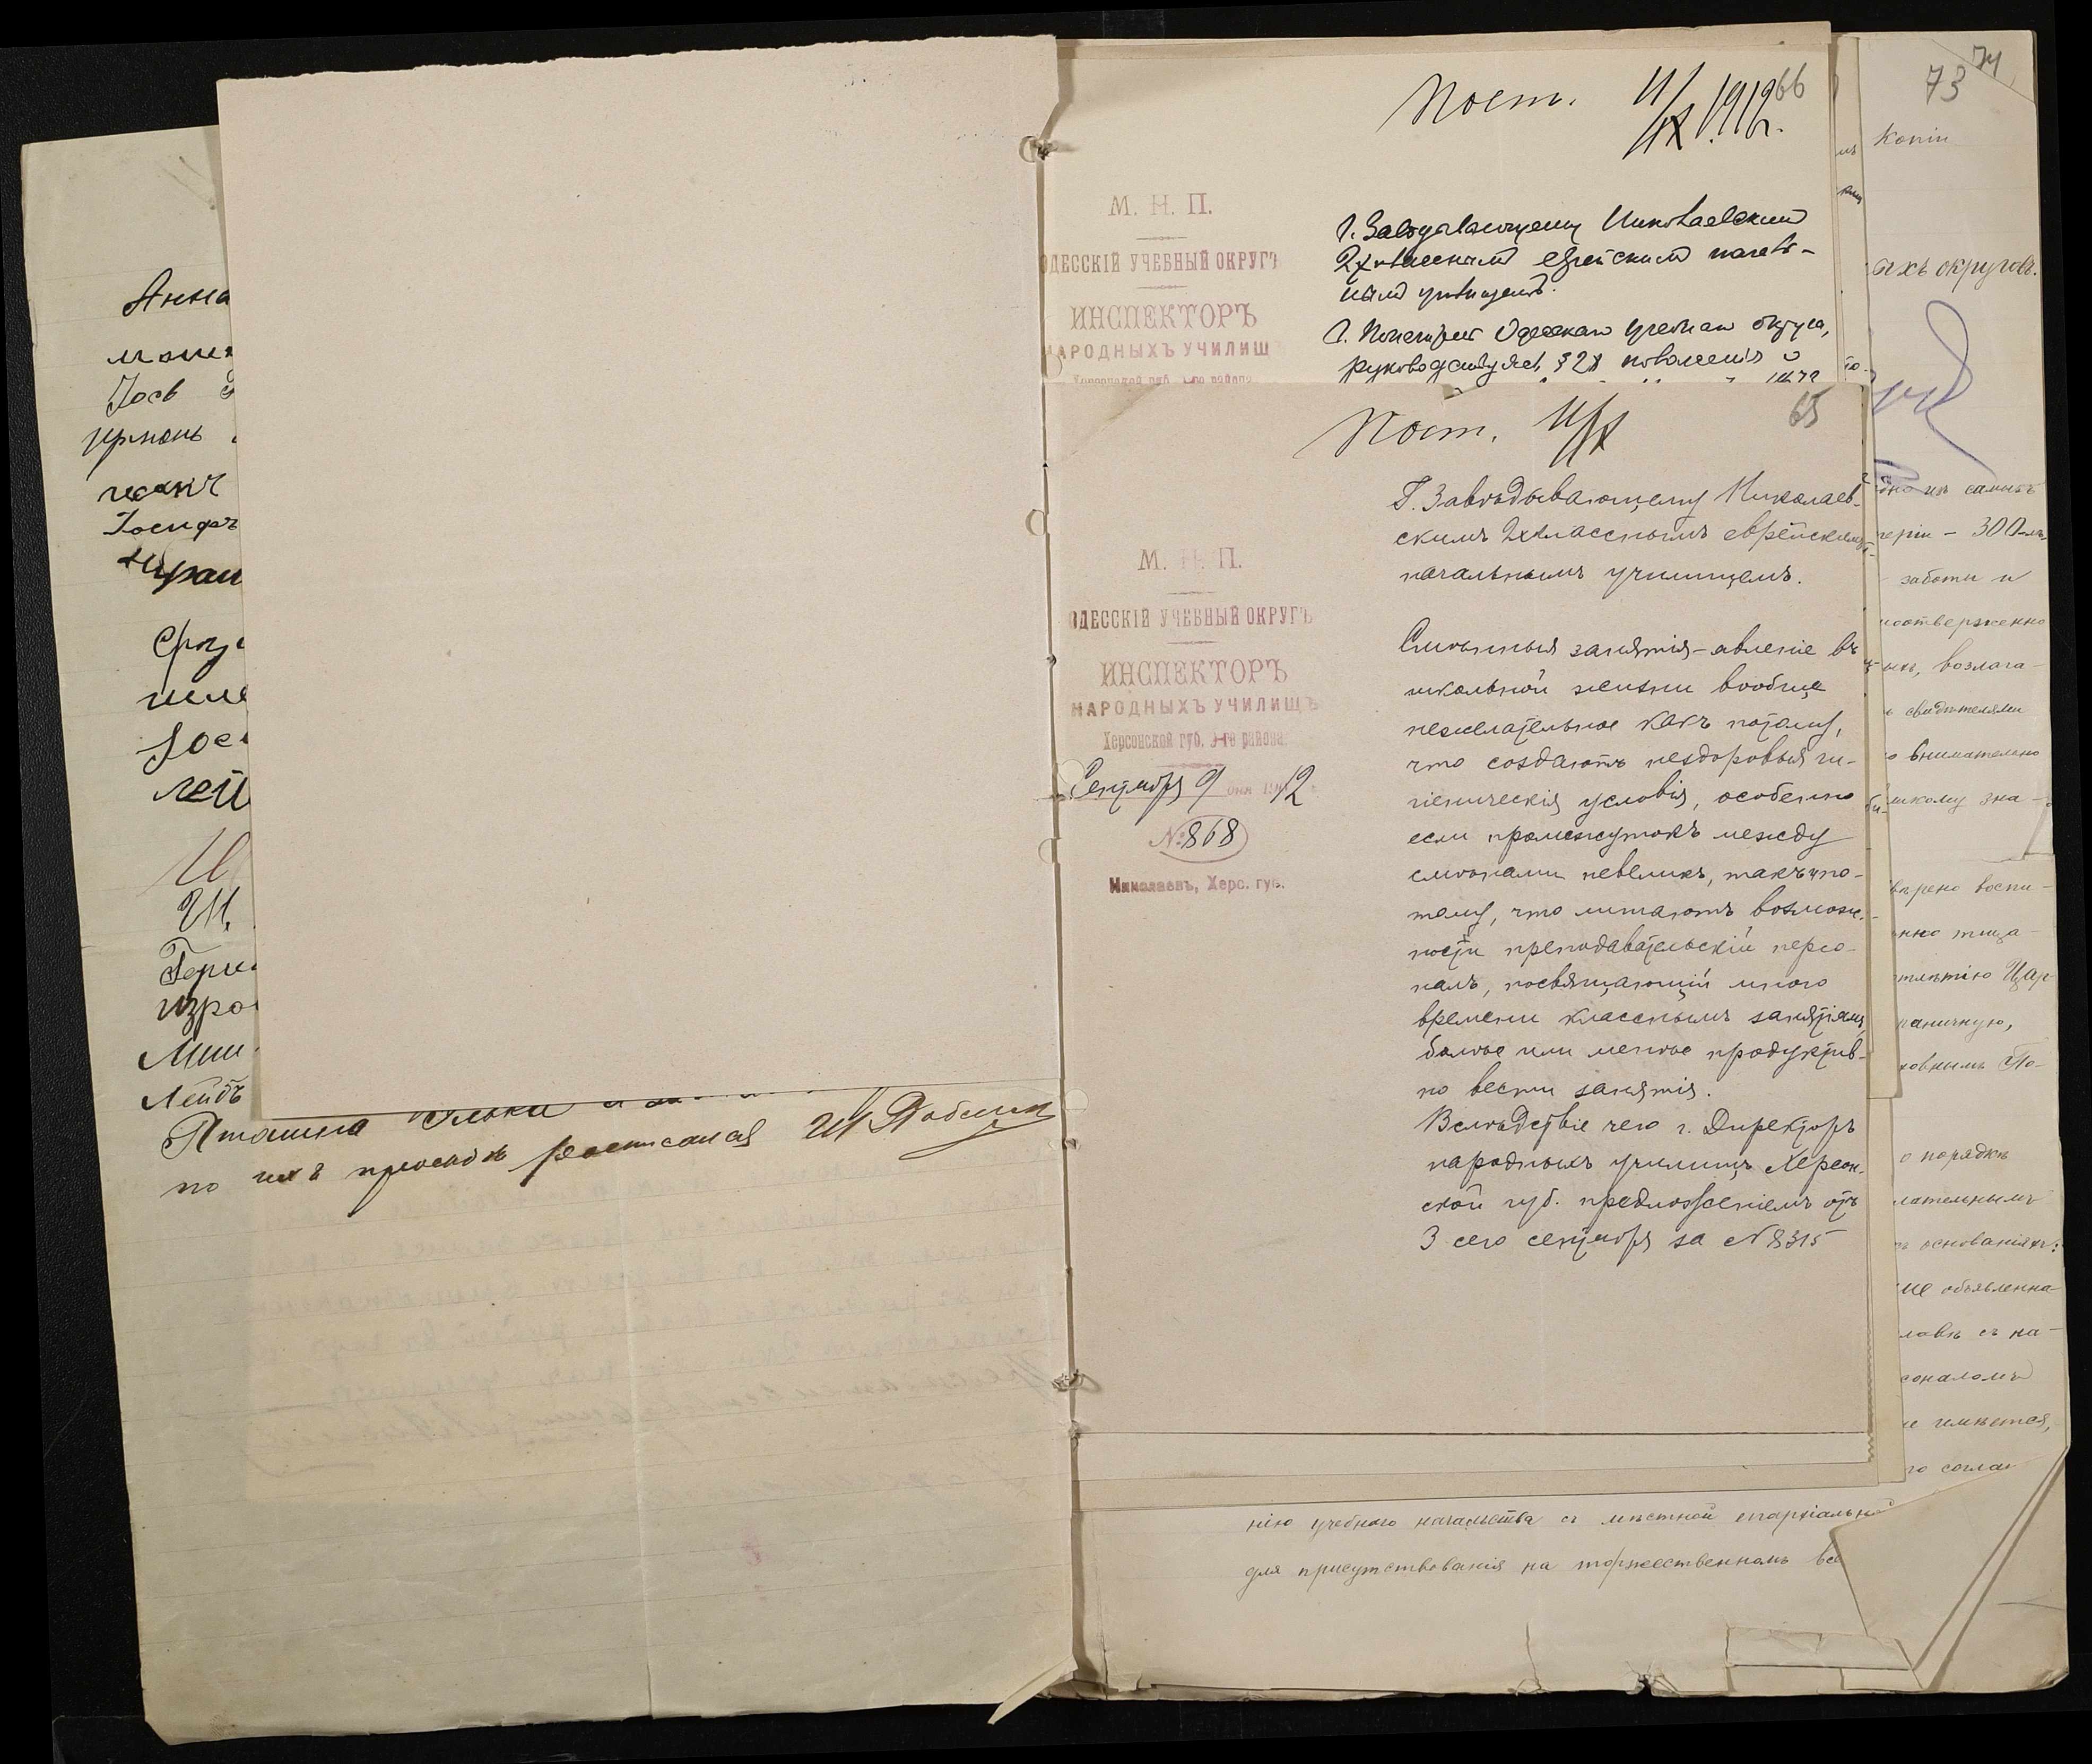 Анна
Іосъ
Іосифъ
И
Ш.
изро
Лейбъ
Пташка
по ихъ просьбѣ росписался
Пост. 11/IX 1912 г.
66
М. Н. П.
ОДЕССКІЙ УЧЕБНЫЙ ОКРУГЪ
ИНСПЕКТОРЪ
НАРОДНЫХЪ УЧИЛИЩ
Г. Завѣдывающему Николаевским
2хкласснымъ еврейскимъ началь-
нымъ училищемъ.
Г. Попечитель Одесскаго Учебнаго Округа,
руководствуясь § 28 положенія о
Пост. 11/IX
65
М. Н. П.
ОДЕССКІЙ УЧЕБНЫЙ ОКРУГЪ
ИНСПЕКТОРЪ
НАРОДНЫХЪ УЧИЛИЩЪ
Херсонской губ. района
Сентября 9 дня 1912
№ 868
Николаевъ, Херс. губ.
Г. Завѣдывающему Николаев-
скимъ 2хкласснымъ еврейскимъ
начальнымъ училищемъ.
Смѣнныя занятія – явленіе въ
школьной жизни вообще
нежелательное какъ потому,
что создаютъ нездоровыя ги-
гіеническія условія, особенно
если промежутокъ между
смѣнами невеликъ, такъ и по-
тому, что лишаютъ возмож-
ности преподавательскій персо-
налъ, посвящающій много
времени класснымъ занятіямъ,
болѣе или менѣе продуктив-
но вести занятія.
Вслѣдствіе чего г. Директоръ
народныхъ училищъ Херсон-
ской губ. предложеніемъ отъ
3 сего сентября за № 8315
73
74
Копія
ыхъ округовъ.
одно изъ самыхъ
періи – 300-лѣ
заботы и
моотверженно
возлага-
свидѣтелями
о внимательно
зна-
ввѣрено воспи-
нно тща-
тилѣтію Цар-
раничную,
ховнымъ По-
о порядкѣ
лательнымъ
основаніяхъ:
ие объявленна-
ловъ съ на-
соналомъ
не имѣется,
по согла
нію учебнаго начальства съ мѣстной епархіально
для присутствованія на торжественномъ